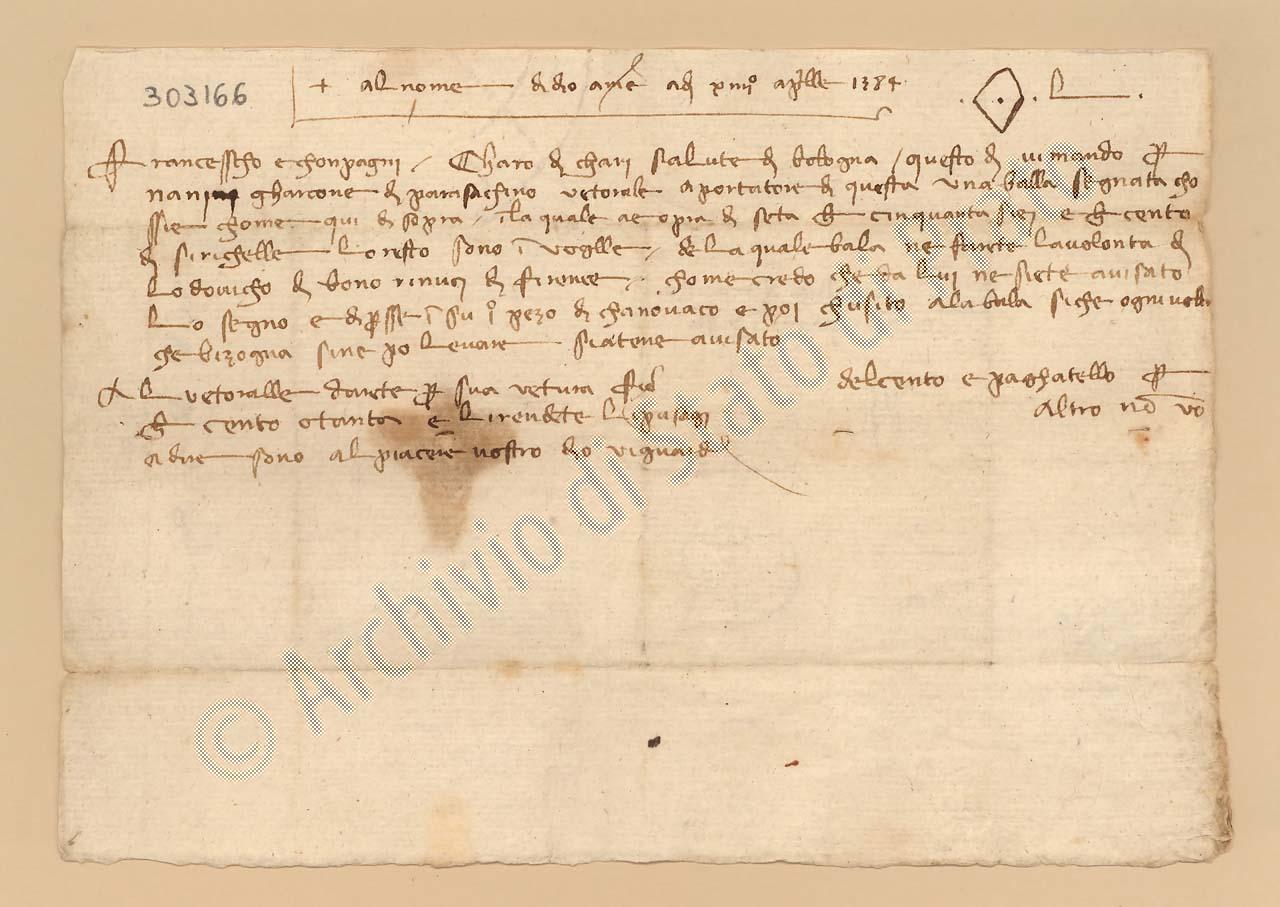 303166
+ al nome di dio ame adi xiiij° aprille 1384 . L .
Francesscho e chonpagni / Charo di chari salute di bologna / questo di vi mando per
nanino gharcone di parasachino vetorale aportatore di questa una balla segnata cho
ssie chome qui di sopra / ila quale a copia di seta lb cinquanta siei e lb cento
di sirichelle lo resto sono i voglle / de la quale bala ne farete la volonta di
Lodovicho di bono rinuci di firence / chome credo che da lui ne siete avisato
Lo segno e di per sse i su i° pezo di chanovaco e poi chusito ala bala siche ogni volta
che bizogna sine po levare siatene avisato
Al vetoralle darete per sua vetura fior del cento e paghatello per
lb cento otanta e li rendete altro no vo
adie sono al piacere vostro dio vi guardi
© Archivio di Stato di Prato